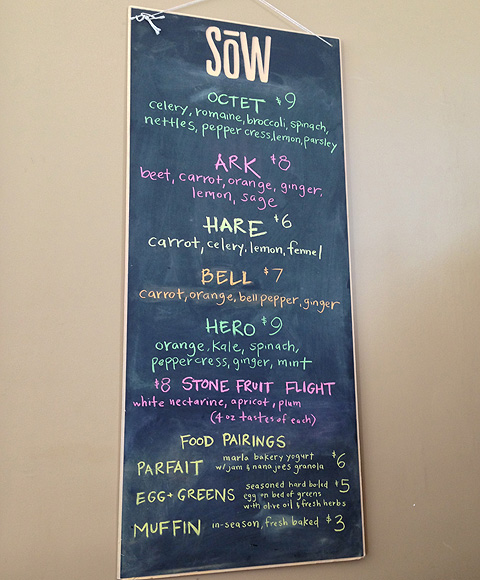 SōW
OCTET $9
celery, romaine, broccoli, spinach,
nettles, pepper cress, lemon, parsley
ARK $8
beet, carrot, orange, ginger,
lemon, sage
HARE $6
carrot, celery, lemon, fennel
BELL $7
carrot, orange, bell pepper, ginger
HERO $9
orange, kale, spinach,
peppercress, ginger, mint
$8 STONE FRUIT FLIGHT
white nectarine, apricot, plum
(4 oz tastes of each)
FOOD PAIRINGS
PARFAIT marla bakery yogurt $6
w/jam & nana joes granola
EGG + GREENS seasoned hard boiled $5
egg on bed of greens
with olive oil & fresh herbs
MUFFIN in-season, fresh baked $3